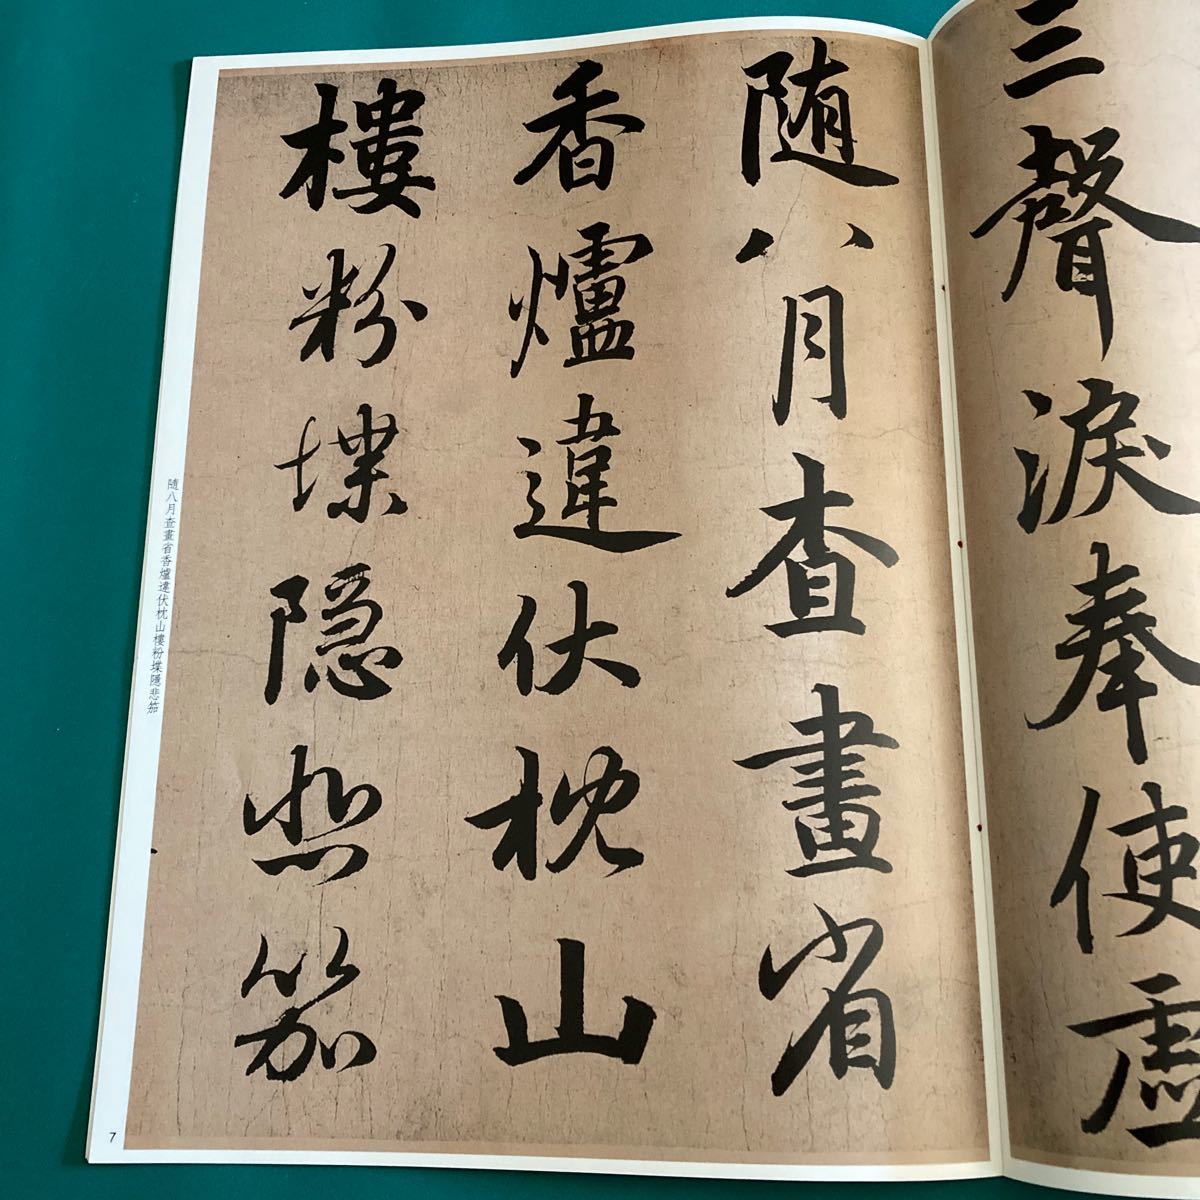 三聲淚奉使虛
随八月查畫省
香爐違伏枕山
樓粉堞隠悲笳
隨八月查畫省香爐違伏枕山樓粉堞隱悲笳
7